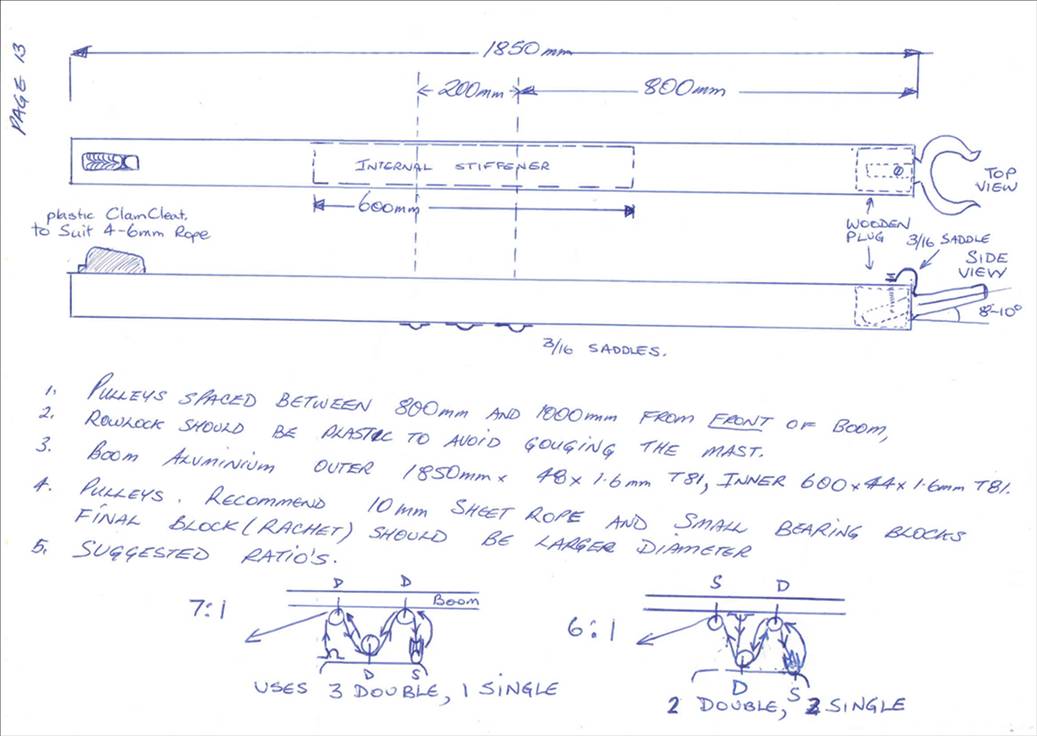 PAGE 13
1850mm
200mm
800mm
INTERNAL STIFFENER
TOP
VIEW
600mm
plastic ClamCleat,
to Suit 4-6mm Rope
WOODEN
PLUG
3/16 SADDLE
SIDE
VIEW
8-10°
3/16 SADDLES.
1. PULLEYS SPACED BETWEEN 800mm AND 1000mm FROM FRONT OF BOOM,
2. ROWLOCK SHOULD BE PLASTIC TO AVOID GOUGING THE MAST.
3. BOOM ALUMINIUM OUTER 1850mm x 48 x 1.6mm T81, INNER 600 x 44 x 1.6mm T81.
4. PULLEYS. RECOMMEND 10mm SHEET ROPE AND SMALL BEARING BLOCKS
FINAL BLOCK (RACHET) SHOULD BE LARGER DIAMETER
5. SUGGESTED RATIO'S.
7:1
D D
BOOM
D S
USES 3 DOUBLE, 1 SINGLE
6:1
S D
D S
2 DOUBLE, 2 SINGLE